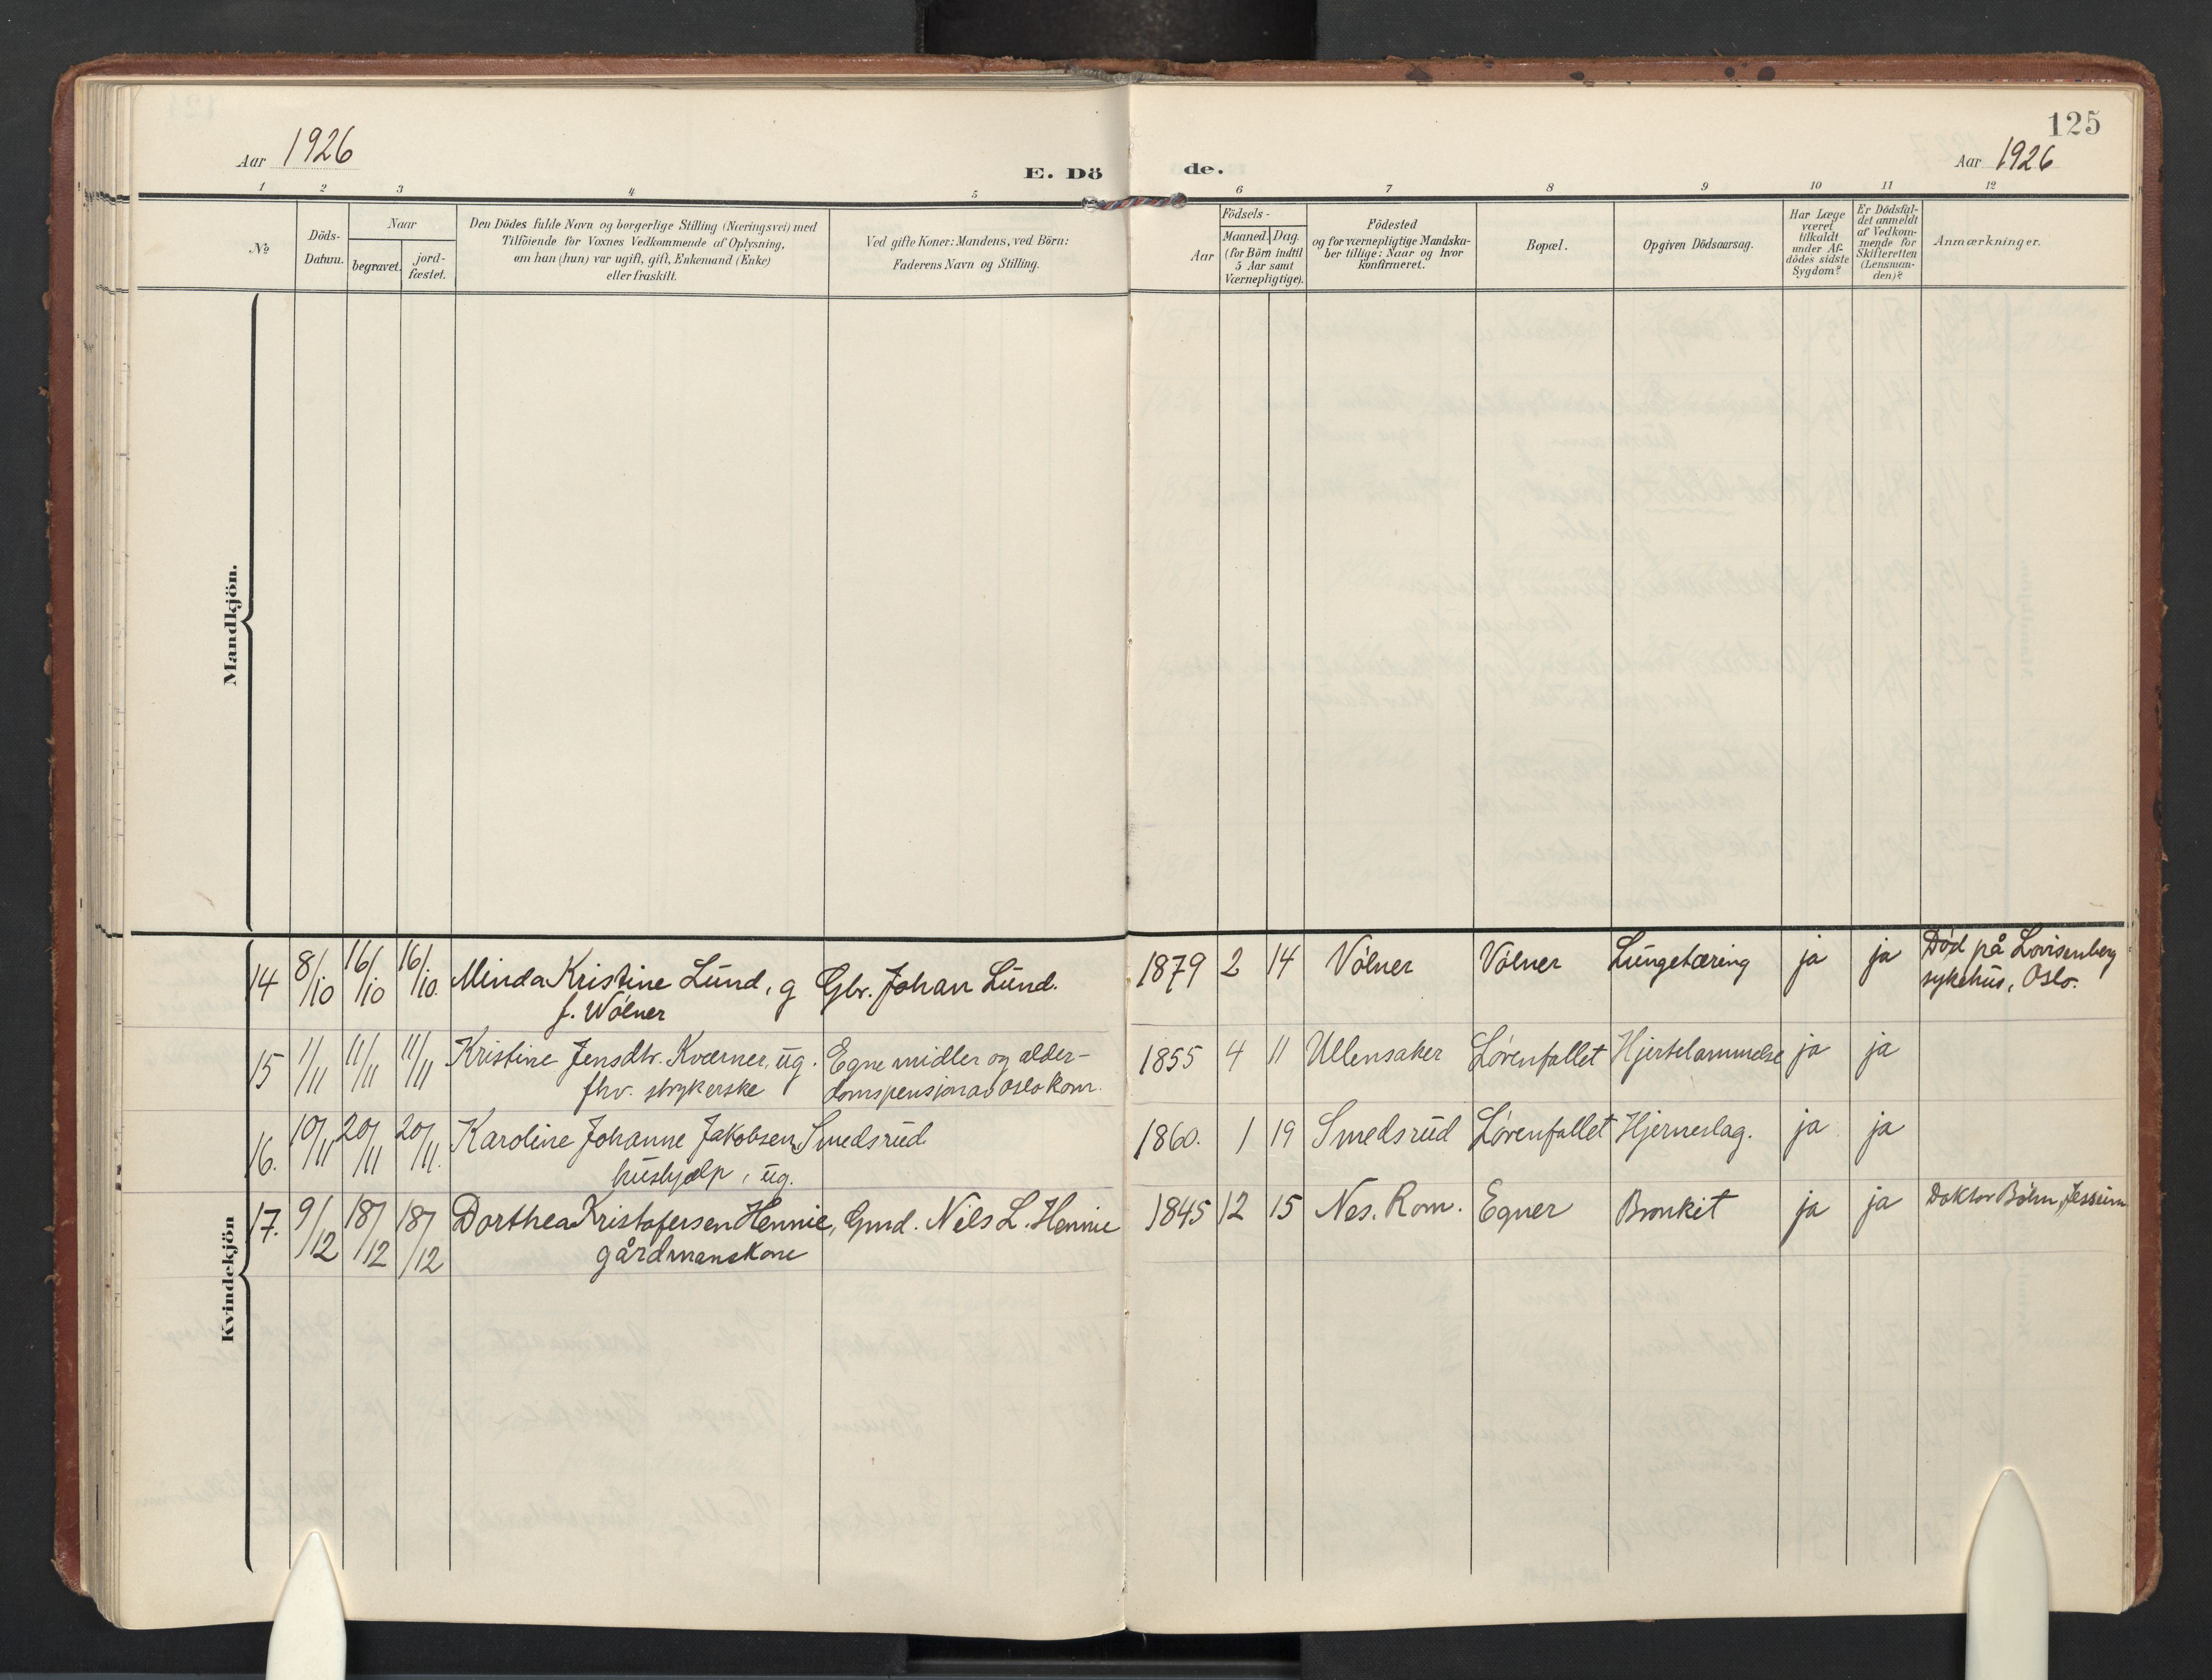 125
Aar 1926
E. Dö
de.
Aar 1926
1 2 3 4 5 6 7 8 9 10 11 12
No
Döds-
Datum.
Naar
begravet.
jord-
fæstet.
Den Dödes fulde Navn og borgerlige Stilling (Næringsvei) med
Tilföiende for Voxnes Vedkommende af Oplysning,
om han (hun) var ugift, gift, Enkemand (Enke)
eller fraskilt.
Ved gifte Koner: Mandens, ved Börn:
Faderens Navn og Stilling.
Födsels-
Aar
Maaned. Dag.
(for Börn indtil
5 Aar samt
Værnepligtige).
Födested
og for værnepligtige Mandska-
ber tillige: Naar og hvor
konfirmeret.
Bopæl.
Opgiven Dödsaarsag.
Har Læge
været
tilkaldt
under Af-
dödes sidste
Sygdom?
Er Dödsfal-
det anmeldt
af Vedkom-
mende for
Skifteretten
(Lensman-
den)?
Anmærkninger.
Mandkjön.
Kvindekjön
14 8/10 16/10 16/10. Minda Kristine Lund, g Gbr. Johan Lund. 1879 2 14 Vølner Vølner Lungetæring ja ja Død på Lovisenberg
f. Wølner sykehus, Oslo.
15 1/11 11/11 11/11 Kristine Jensdtr. Kværner, ug. Egne midler og alder- 1855 4 11 Ullensaker Lørenfallet Hjertelammelse ja ja
fhv. strykerske domspensjon av Oslo kom.
16. 10/11 20/11 20/11. Karoline Johanne Jakobsen Smedsrud 1860. 1 19 Smedsrud Lørenfallet Hjerneslag. ja ja
hushjelp, ug.
17. 9/12 18/12 18/12 Dorthea Kristofersen Hennie, Gmd. Nils L. Hennie 1845 12 15 Nes. Rom. Egner Bronkit ja ja Doktor Bøhn, Jessheim
gårdmanskone